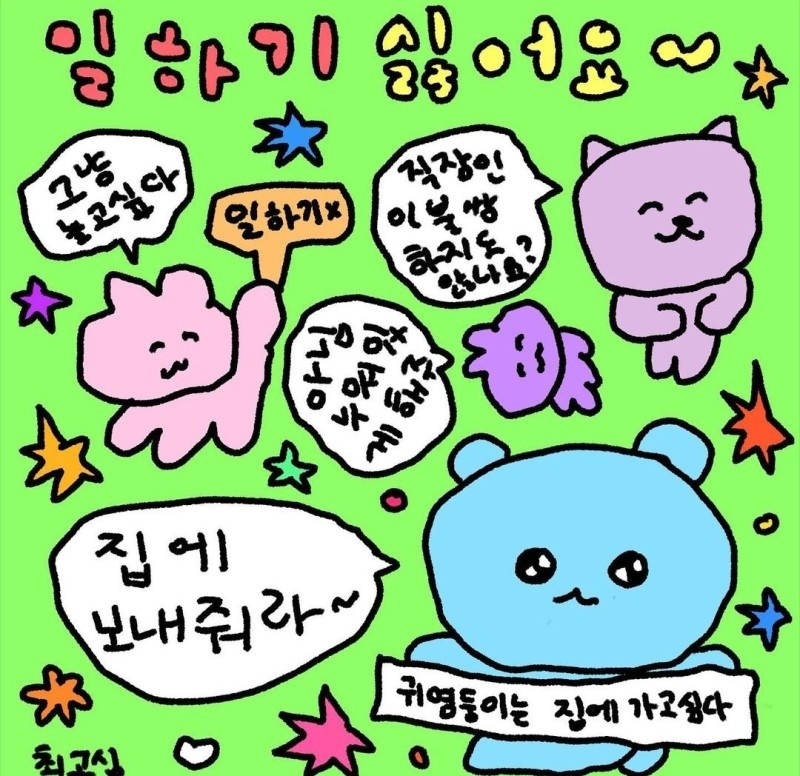 일하기 싫어요~
그냥
놀고싶다
일하기x
직장인
이불쌍
하지도
않나요?
아님
나 뭐밌
게 해주
집에
보내줘라~
귀염둥이는 집에 가고싶다
최고심